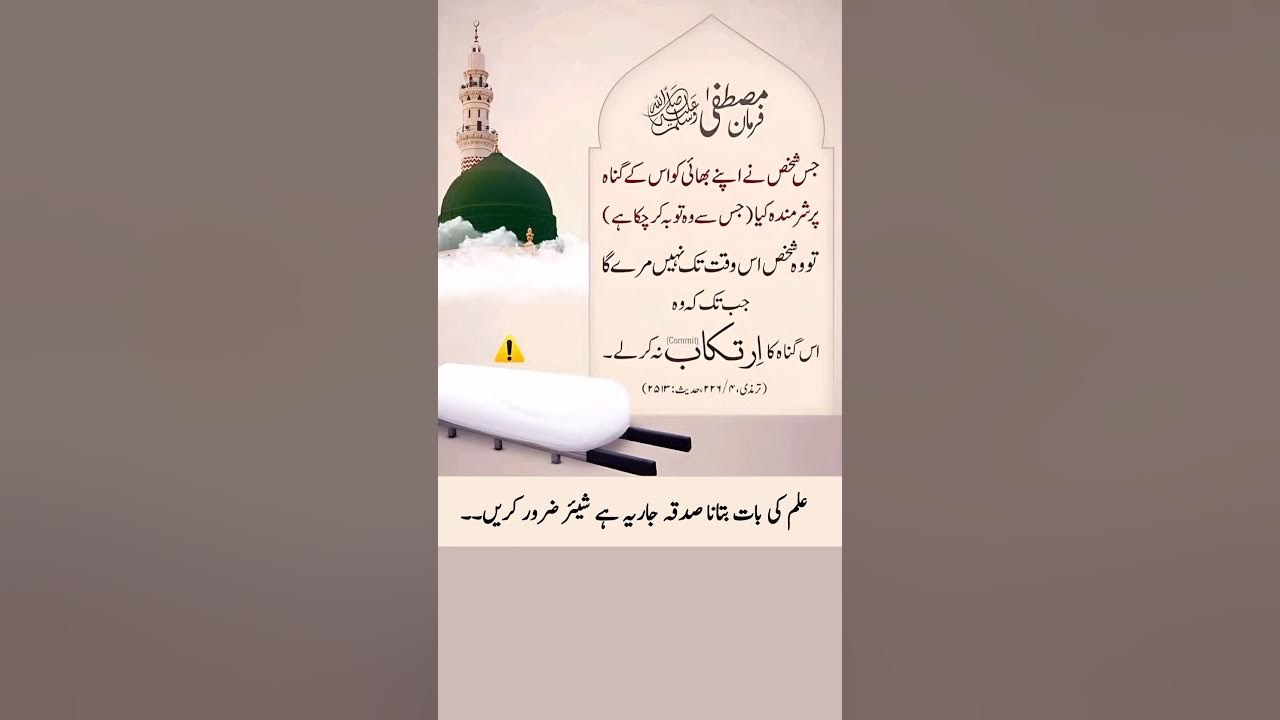 فرمان مصطفیٰ صلی اللہ علیہ وسلم
جس شخص نے اپنے بھائی کو اس کے گناہ
پر شرمندہ کیا (جس سے وہ توبہ کر چکا ہے)
تو وہ شخص اس وقت تک نہیں مرے گا
جب تک کہ وہ
اس گناہ کا اِرتکاب (Commit) نہ کر لے۔
(ترمذی، ۴/ ۲۲۶، حدیث: ۲۵۱۳)
علم کی بات بتانا صدقہ جاریہ ہے شیئر ضرور کریں۔۔